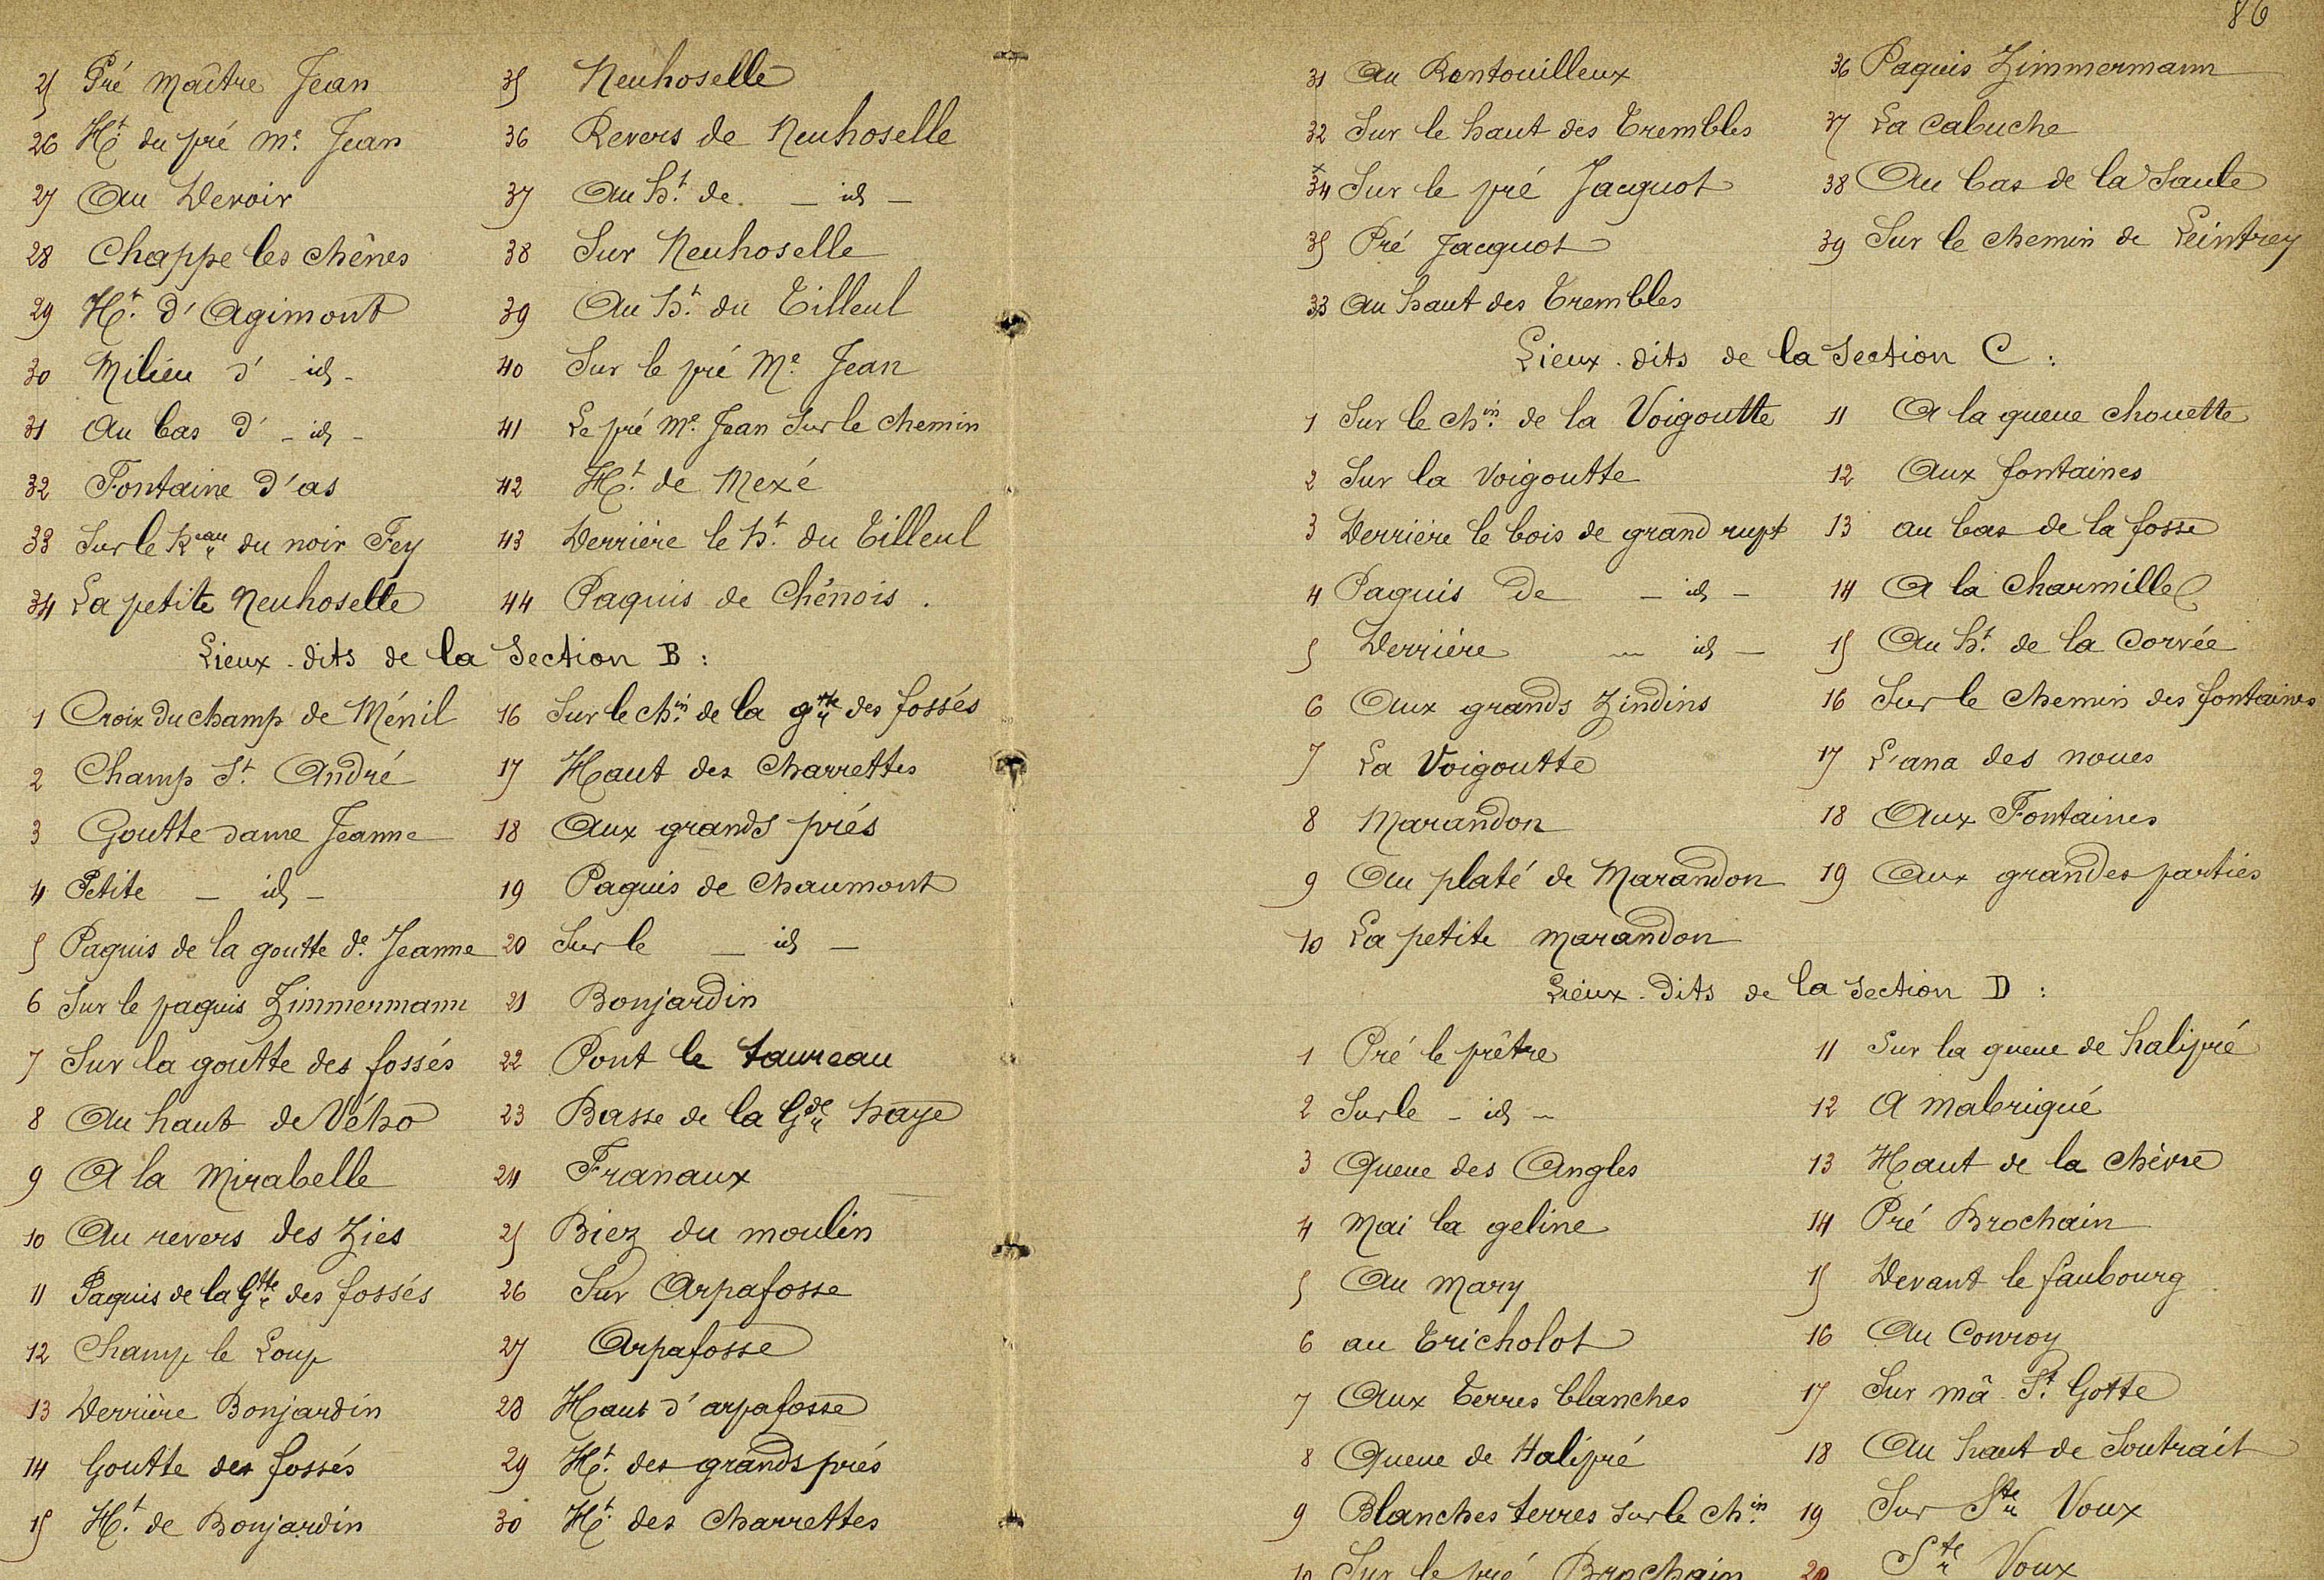 86
25 Pré Maître Jean
26 Ht. du pré Me. Jean
27 Au Devoir
28 Chappe les chênes
29 Ht. d'Agimont
30 Milieu d' - id -
31 Au bas d' - id -
32 Fontaine d'as
33 Sur le Reau du noir Fey
34 La petite Neuhoselle
35 Neuhoselle
36 Revers de Neuhoselle
37 Au ht. de. - id -
38 Sur Neuhoselle
39 Au ht. du Tilleul
40 Sur le pré Me. Jean
41 Le pré Me. Jean sur le chemin
42 Ht. de Mexé
43 Derrière le ht. du Tilleul
44 Paquis de Chênois.
Lieux-dits de la Section B :
1 Croix du champ de Ménil
2 Champ St. André
3 Goutte dame Jeanne
4 Petite - id -
5 Paquis de la goutte de. Jeanne
6 Sur le paquis Zimmermann
7 Sur la goutte des fossés
8 Au haut de Vého
9 A la Mirabelle
10 Au revers des Zies
11 Paquis de la Gtte des fossés
12 Champ le Loup
13 Derrière Bonjardin
14 Goutte des fossés
15 Ht. de Bonjardin
16 Sur le chin. de la gtte des fossés
17 Haut des Charrettes
18 Aux grands prés
19 Paquis de Chaumont
20 Sur le - id -
21 Bonjardin
22 Pont le taureau
23 Basse de la Gde haye
24 Franaux
25 Biez du moulin
26 Sur Arpafosse
27 Arpafosse
28 Haut d'arpafosse
29 Ht. des grands prés
30 Ht. des Charrettes
31 Au Rontouilleux
32 Sur le haut des Trembles
x
34 Sur le pré Jacquot
35 Pré Jacquot
33 Au haut des Trembles
36 Paquis Zimmermann
37 La Cabuche
38 Au bas de la Saule
39 Sur le chemin de Leintrey
Lieux-dits de la Section C :
1 Sur le chin. de la Voigoutte
2 Sur la Voigoutte
3 Derrière le bois de grand rupt
4 Paquis de - id -
5 Derrière - id -
6 Aux grands Zindins
7 La Voigoutte
8 Marandon
9 Au platé de Marandon
10 La petite Marandon
11 A la queue chouette
12 Aux fontaines
13 au bas de la fosse
14 A la Charmille
15 Au ht. de la Corvée
16 Sur le chemin des fontaines
17 L'ana des noues
18 Aux Fontaines
19 Aux grandes parties
Lieux-dits de la Section D :
1 Pré le prêtre
2 Sur le - id -
3 Queue des Angles
4 Mai la geline
5 Au Mary
6 au Tricholot
7 Aux terres blanches
8 Queue de Halipré
9 Blanches terres sur le chin.
10 Sur le pré Brochain
11 Sur la queue de halipré
12 A Mabrigué
13 Haut de la chèvre
14 Pré Brochain
15 Devant le faubourg
16 Au Conroy
17 Sur mâ St. Gotte
18 Au haut de Soutrait
19 Sur Ste Voux
20 Ste Voux